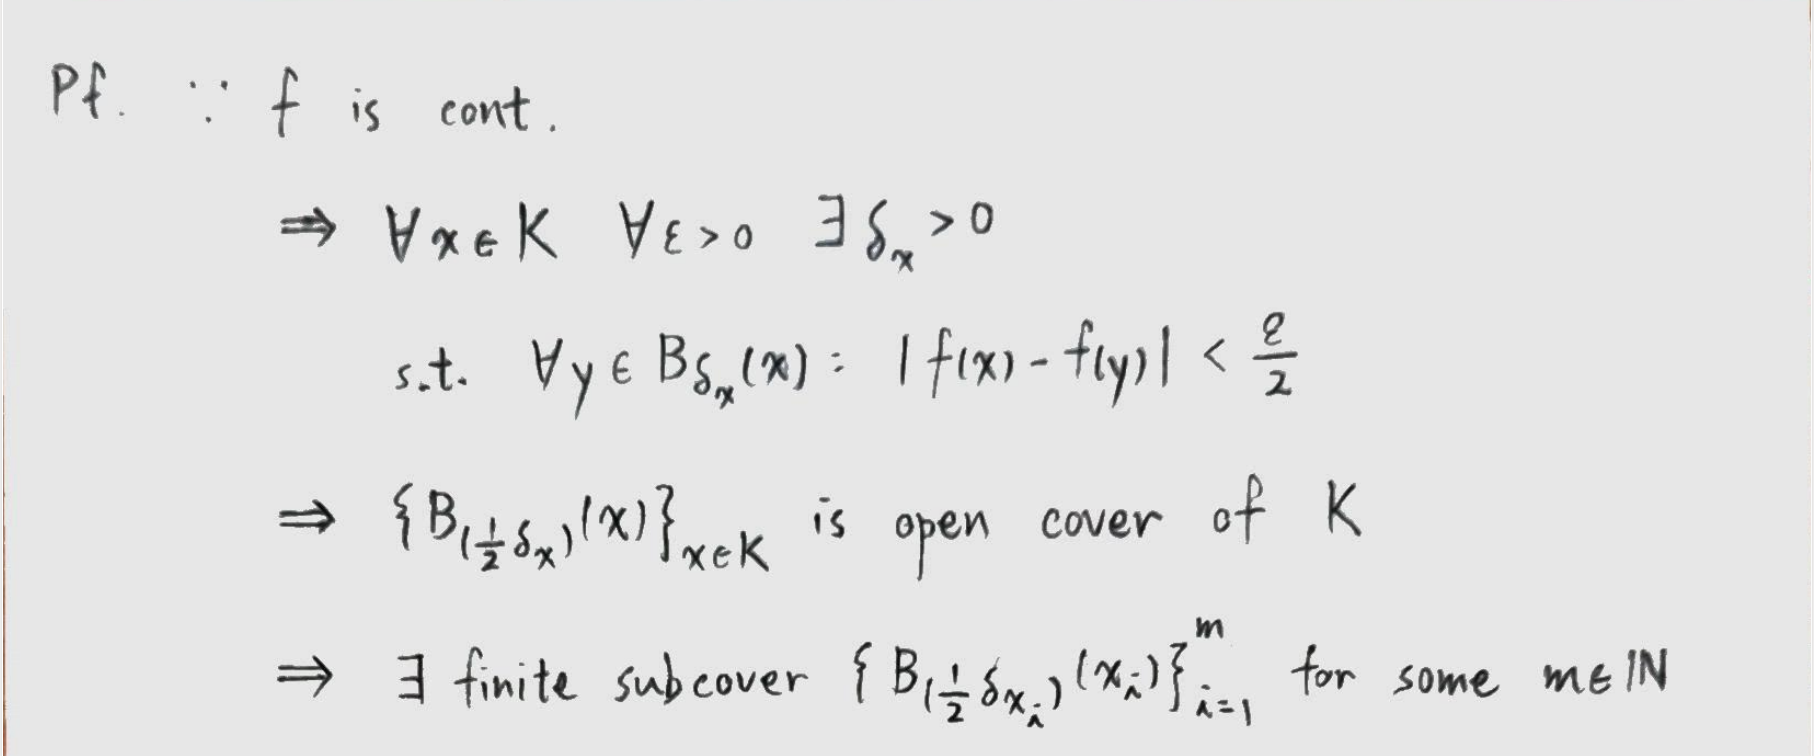 Pf. ∵ f is cont.
⇒ ∀x∈K ∀ε>0 ∃δₓ>0
s.t. ∀y∈B_{δₓ}(x): |f(x)-f(y)| < ε/2
⇒ {B_{(½δₓ)}(x)}_{x∈K} is open cover of K
⇒ ∃ finite subcover {B_{(½δ_{x_i})}(x_i)}_{i=1}^{m} for some m∈ℕ